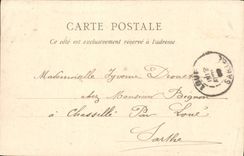 CARTE POSTALE
Ce côté est exclusivement réservé à l'adresse
Mademoiselle Yvonne Drouet
chez Monsieur Bignon
à Chassillé Par Loué
Sarthe